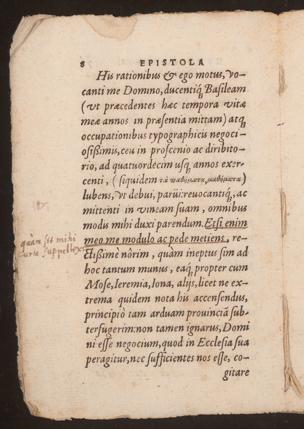 8 EPISTOLA
His rationibus & ego motus, vo-
canti me Domino, ducentiq; Basileam
(vt præcedentes hæc tempora vitæ
meæ annos in præsentia mittam) atq;
occupationibus typographicis negoci-
osissimis, ceu in proscenio ac diribito-
rio, ad quatuordecim usq; annos exer-
centi, (siquidem τὰ παθήματα, μαθήματα)
lubens, vt debui, parui: reuocantiq;, ac
mittenti in vineam suam, omnibus
modis mihi duxi parendum. Etsi enim
meo me modulo ac pede metiens, re-
ctissimè nôrim, quàm ineptus sim ad
hoc tantum munus, eaq; propter cum
Mose, Ieremia, Iona, alijs, licet ne ex-
trema quidem nota his accensendus,
principio tam arduam prouinciã sub-
terfugerim: non tamen ignarus, Domi
ni esse negocium, quod in Ecclesia sua
peragitur, nec sufficientes nos esse, co-
gitare
quàm sit mihi
curta suppellex